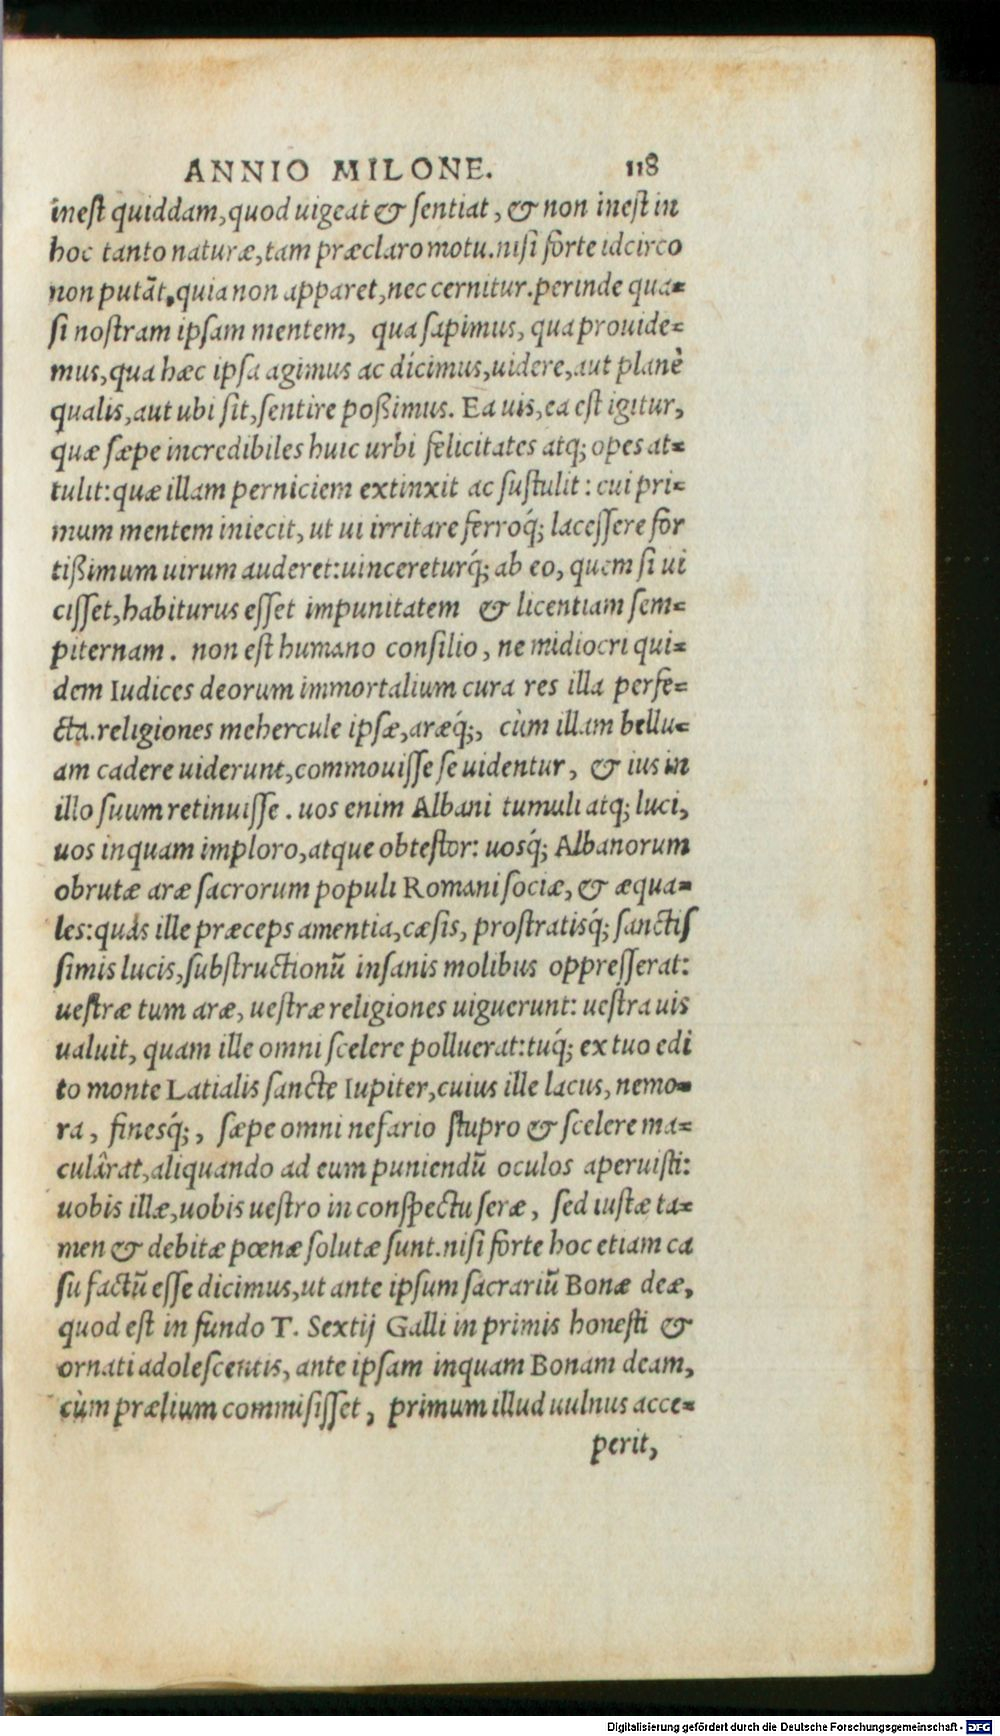 ANNIO MILONE. 118
ineſt quiddam,quod uigeat & ſentiat, & non ineſt in
hoc tanto naturæ,tam præclaro motu.niſi forte idcirco
non putãt,quia non apparet,nec cernitur.perinde qua=
ſi noſtram ipſam mentem, qua ſapimus, qua prouide=
mus,qua hæc ipſa agimus ac dicimus,uidere,aut planè
qualis,aut ubi ſit,ſentire poßimus. Ea uis,ea eſt igitur,
quæ ſæpe incredibiles huic urbi felicitates atq; opes at=
tulit:quæ illam perniciem extinxit ac ſuſtulit: cui pri=
mum mentem iniecit, ut ui irritare ferroq́; laceſſere for
tißimum uirum auderet:uincereturq́; ab eo, quem ſi ui
ciſſet,habiturus eſſet impunitatem & licentiam ſem=
piternam. non eſt humano conſilio, ne midiocri qui=
dem Iudices deorum immortalium cura res illa perfe=
cta.religiones mehercule ipſæ,aræq́;, cùm illam bellu=
am cadere uiderunt,commouiſſe ſe uidentur, & ius in
illo ſuum retinuiſſe. uos enim Albani tumuli atq; luci,
uos inquam imploro,atque obteſtor: uosq́; Albanorum
obrutæ aræ ſacrorum populi Romani ſociæ, & æqua=
les:quas ille præceps amentia,cæſis, proſtratisq́; ſanctiſ
ſimis lucis,ſubſtructionũ inſanis molibus oppreſſerat:
ueſtræ tum aræ, ueſtræ religiones uiguerunt: ueſtra uis
ualuit, quam ille omni ſcelere polluerat:tuq́; ex tuo edi
to monte Latialis ſancte Iupiter,cuius ille lacus, nemo=
ra, fineſq́;, ſæpe omni nefario ſtupro & ſcelere ma=
culârat,aliquando ad eum puniendũ oculos aperuiſti:
uobis illæ,uobis ueſtro in conſpectu ſeræ, ſed iuſtæ ta=
men & debitæ pœnæ ſolutæ ſunt.niſi forte hoc etiam ca
ſu factũ eſſe dicimus,ut ante ipſum ſacrariũ Bonæ deæ,
quod eſt in fundo T. Sextij Galli in primis honeſti &
ornati adoleſcentis, ante ipſam inquam Bonam deam,
cùm prælium commiſiſſet, primum illud uulnus acce=
perit,
Digitalisierung gefördert durch die Deutsche Forschungsgemeinschaft - DFG